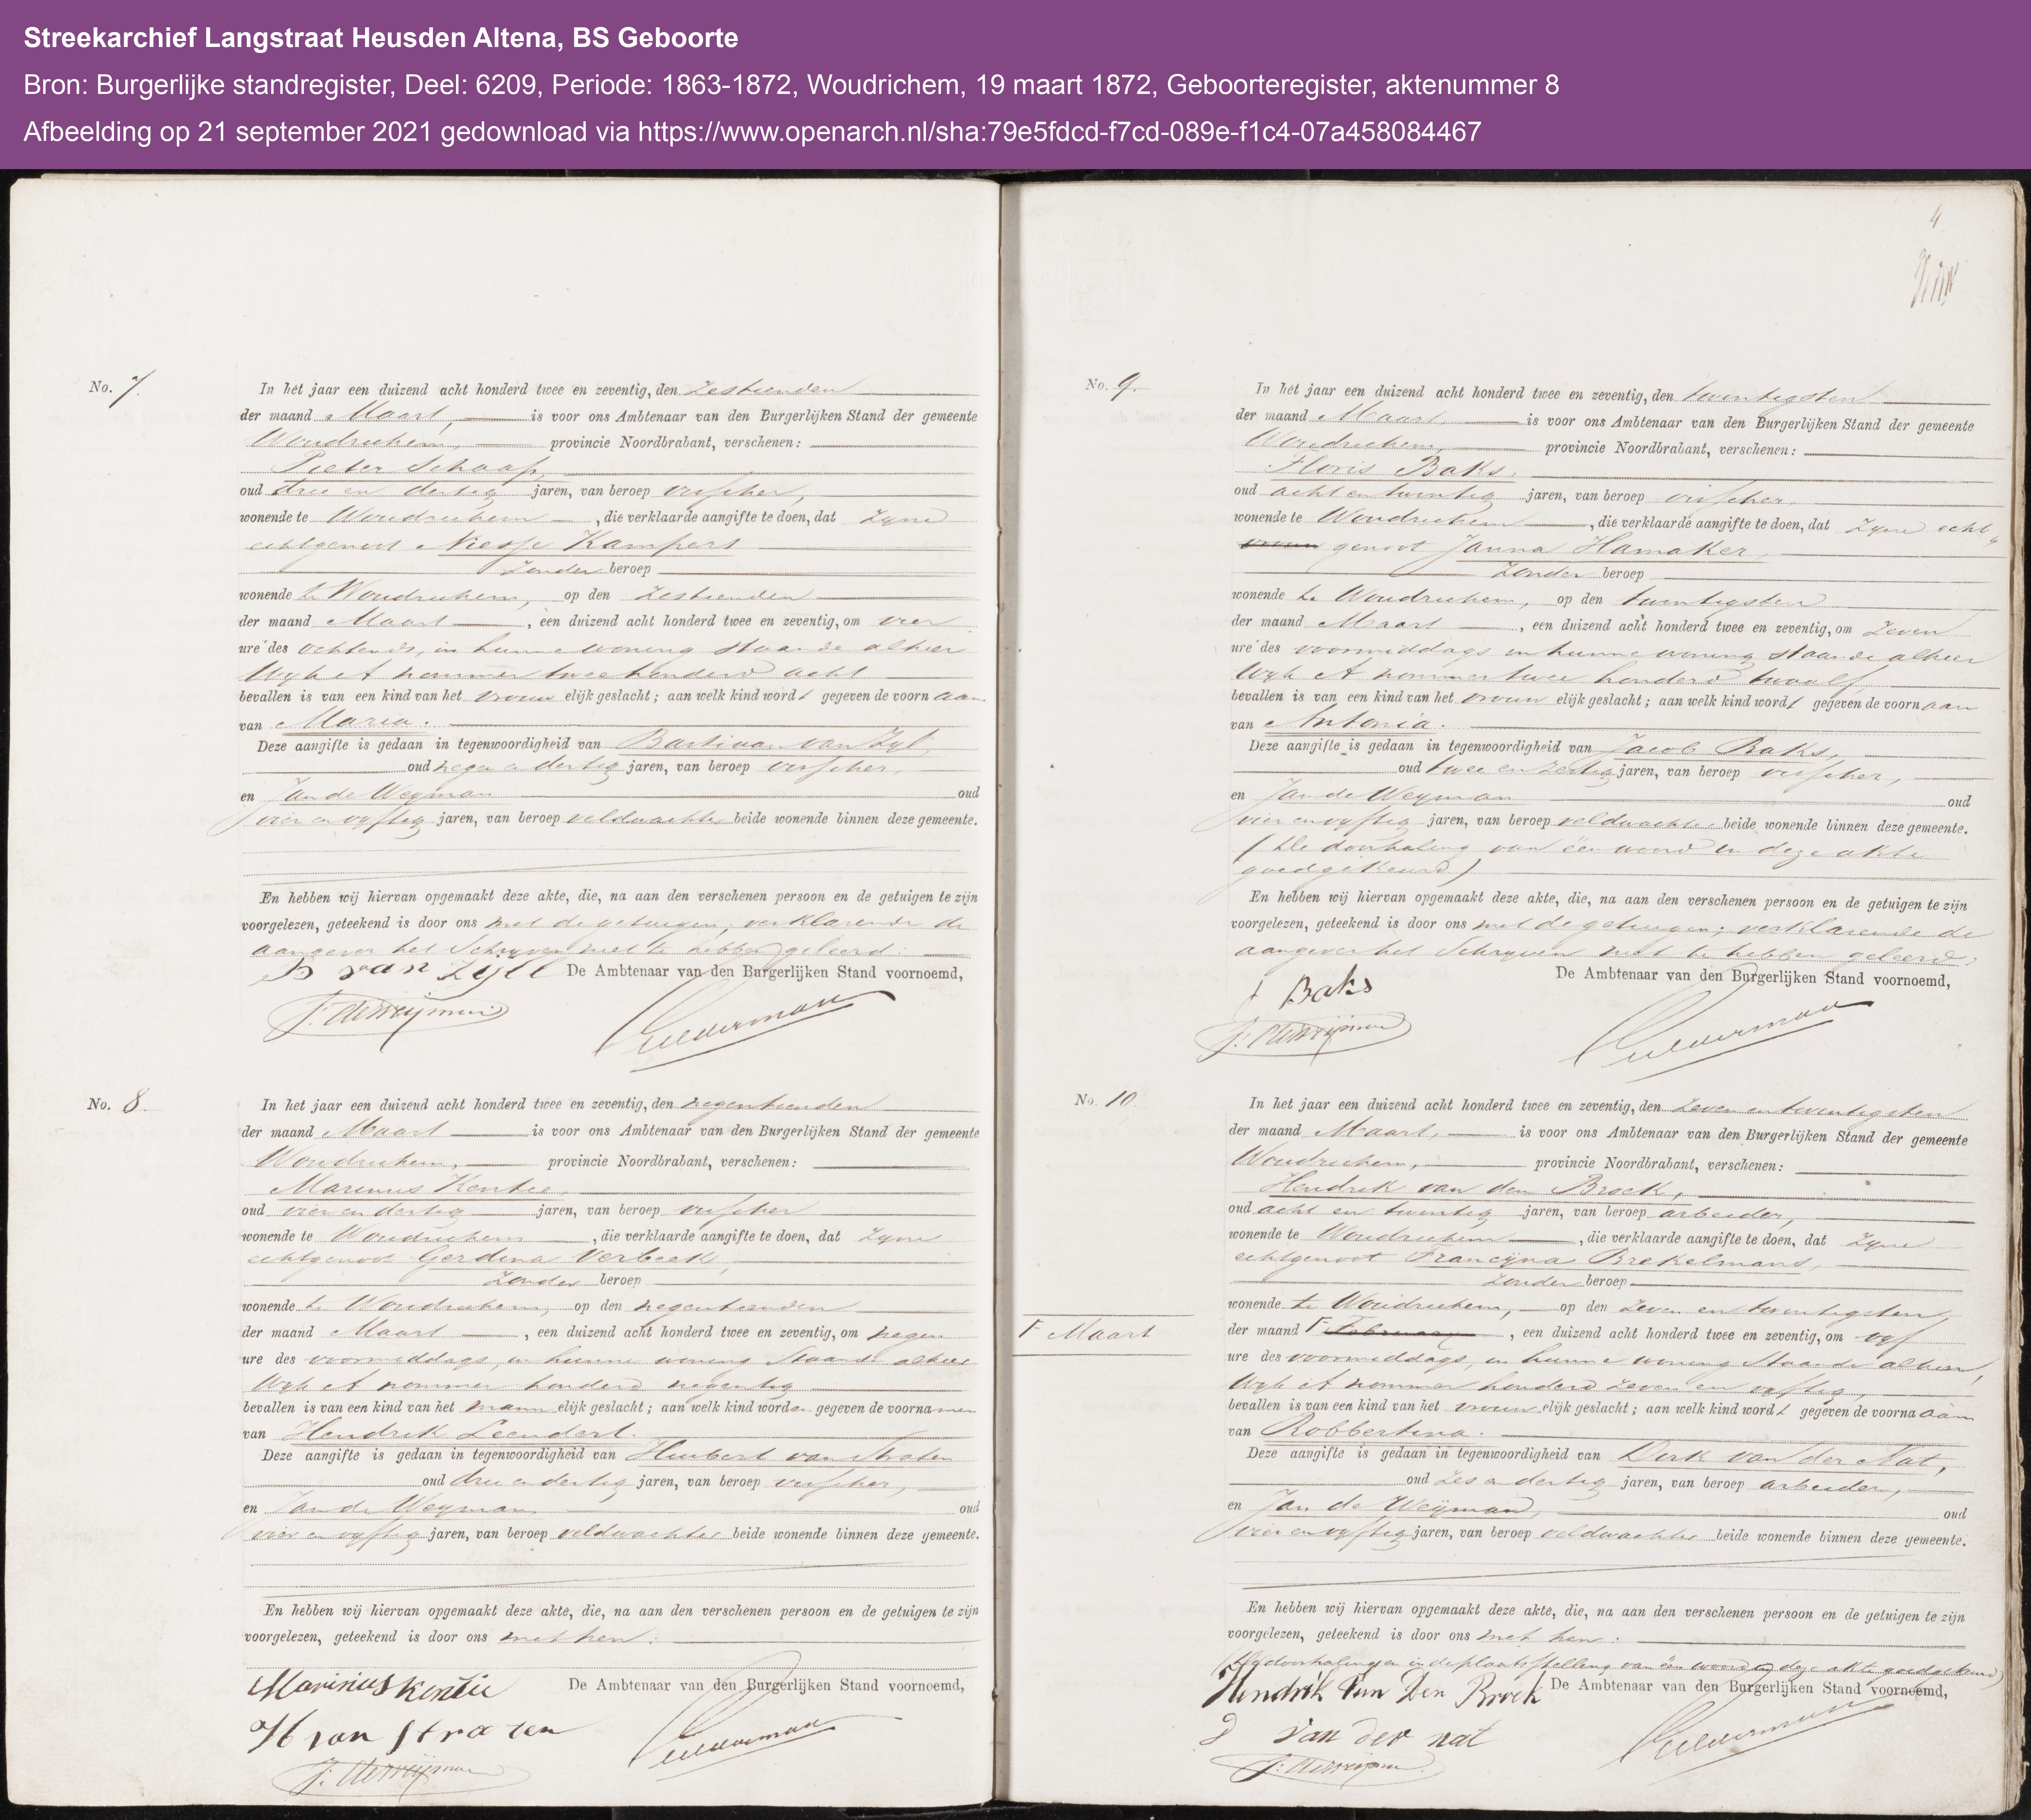 Streekarchief Langstraat Heusden Altena, BS Geboorte
Bron: Burgerlijke standregister, Deel: 6209, Periode: 1863-1872, Woudrichem, 19 maart 1872, Geboorteregister, aktenummer 8
Afbeelding op 21 september 2021 gedownload via https://www.openarch.nl/sha:79e5fdcd-f7cd-089e-f1c4-07a458084467
No. 7.
In het jaar een duizend acht honderd twee en zeventig, den zestienden
der maand Maart, is voor ons Ambtenaar van den Burgerlijken Stand der gemeente
Woudrichem, provincie Noordbrabant, verschenen:
Pieter Schaap,
oud drie en dertig jaren, van beroep visscher,
wonende te Woudrichem, die verklaarde aangifte te doen, dat zyne
echtgenoot Niesje Kampert
zonder beroep
wonende te Woudrichem, op den zestienden
der maand Maart, een duizend acht honderd twee en zeventig, om vier
ure des ochtends, in hunne woning staande alhier
Wyk A nommer twee honderd acht
bevallen is van een kind van het vrouwelijk geslacht; aan welk kind wordt gegeven de voornaam
van Maria.
Deze aangifte is gedaan in tegenwoordigheid van Bastiaan van Zyl
oud negen en dertig jaren, van beroep visscher,
en Jan de Weyman oud
vier en vyftig jaren, van beroep veldwachter beide wonende binnen deze gemeente.
En hebben wij hiervan opgemaakt deze akte, die, na aan den verschenen persoon en de getuigen te zijn
voorgelezen, geteekend is door ons met de getuigen, verklarende de
aangever het Schryven niet te hebben geleerd.
B van Zyll De Ambtenaar van den Burgerlijken Stand voornoemd,
J: de Weijman
No. 8.
In het jaar een duizend acht honderd twee en zeventig, den negentienden
der maand Maart is voor ons Ambtenaar van den Burgerlijken Stand der gemeente
Woudrichem, provincie Noordbrabant, verschenen:
Marinus Kentie,
oud vier en dertig jaren, van beroep visscher
wonende te Woudrichem, die verklaarde aangifte te doen, dat zyne
echtgenoot Gerdina Verbeek,
zonder beroep
wonende te Woudrichem, op den negentienden
der maand Maart, een duizend acht honderd twee en zeventig, om negen
ure des voormiddags, in hunne woning staande alhier
Wyk A nommer honderd negentig
bevallen is van een kind van het mannelijk geslacht; aan welk kind worden gegeven de voornamen
van Hendrik Leendert.
Deze aangifte is gedaan in tegenwoordigheid van Huibert van Straten
oud drie en dertig jaren, van beroep visscher,
en Jan de Weyman, oud
vier en vyftig jaren, van beroep veldwachter beide wonende binnen deze gemeente.
En hebben wij hiervan opgemaakt deze akte, die, na aan den verschenen persoon en de getuigen te zijn
voorgelezen, geteekend is door ons met hen.
Marinus Kentie De Ambtenaar van den Burgerlijken Stand voornoemd,
H van Straten
J: de Weijman
4
No. 9.
In het jaar een duizend acht honderd twee en zeventig, den twintigsten
der maand Maart is voor ons Ambtenaar van den Burgerlijken Stand der gemeente
Woudrichem, provincie Noordbrabant, verschenen:
Floris Baks,
oud acht en twintig jaren, van beroep visscher,
wonende te Woudrichem, die verklaarde aangifte te doen, dat zyne echt„
vrouw genoot Janna Hamaker,
zonder beroep
wonende te Woudrichem, op den twintigsten
der maand Maart, een duizend acht honderd twee en zeventig, om zeven
ure des voormiddags in hunne woning staande alhier
Wyk A nommer twee honderd twaalf
bevallen is van een kind van het vrouwelijk geslacht; aan welk kind wordt gegeven de voornaam
van Antonia.
Deze aangifte is gedaan in tegenwoordigheid van Jacob Baks,
oud twee en zestig jaren, van beroep visscher,
en Jan de Weyman oud
vier en vyftig jaren, van beroep veldwachter beide wonende binnen deze gemeente.
(De doorhaling van één woord in deze akte
goedgekeurd)
En hebben wij hiervan opgemaakt deze akte, die, na aan den verschenen persoon en de getuigen te zijn
voorgelezen, geteekend is door ons met de getuigen; verklarende de
aangever het Schryven niet te hebben geleerd.
J Baks De Ambtenaar van den Burgerlijken Stand voornoemd,
J: de Weijman
No. 10.
In het jaar een duizend acht honderd twee en zeventig, den zeven en twintigsten
der maand Maart, is voor ons Ambtenaar van den Burgerlijken Stand der gemeente
Woudrichem, provincie Noordbrabant, verschenen:
Hendrik van den Broek,
oud acht en twintig jaren, van beroep arbeider,
wonende te Woudrichem, die verklaarde aangifte te doen, dat zyne
echtgenoot Francyna Brekelmans,
zonder beroep
wonende te Woudrichem, op den zeven en twintigsten
Γ Maart
der maand Γ Februarij, een duizend acht honderd twee en zeventig, om vyf
ure des voormiddags, in hunne woning staande alhier,
Wyk A nommer honderd zeven en vyftig,
bevallen is van een kind van het vrouwelijk geslacht; aan welk kind wordt gegeven de voornaam
van Robbertina.
Deze aangifte is gedaan in tegenwoordigheid van Dirk van der Nat,
oud zes en dertig jaren, van beroep arbeider,
en Jan de Weijman, oud
vier en vyftig jaren, van beroep veldwachter beide wonende binnen deze gemeente.
En hebben wij hiervan opgemaakt deze akte, die, na aan den verschenen persoon en de getuigen te zijn
voorgelezen, geteekend is door ons met hen.
(De doorhaling en indeplaatsstelling van één woord in deze akte goedgekeurd)
Hendrik Van Den Broek De Ambtenaar van den Burgerlijken Stand voornoemd,
D van der nat
J: de Weijman